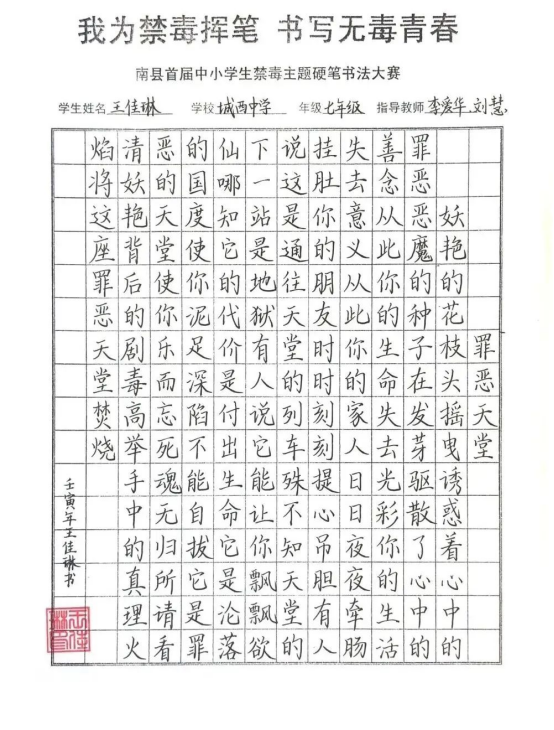 我为禁毒挥笔 书写无毒青春
南县首届中小学生禁毒主题硬笔书法大赛
学生姓名 王佳琳 学校 城西中学 年级 七年级 指导教师 李爱华 刘慧
罪恶天堂
妖艳的花枝头摇曳诱惑着心中的
罪恶恶魔的种子在发芽驱散了心中的
善念从此你的生命失去光彩你的生活
失去意义从此你的家人日日夜夜牵肠
挂肚你的朋友时时刻刻提心吊胆有人
说这是通往天堂的列车殊不知天堂的
下一站是地狱有人说它能让你飘飘欲
仙哪知它的代价是付出生命它是沦落
的国度使你泥足深陷不能自拔它是罪
恶的天堂使你乐而忘死魂无归所请看
清妖艳背后的剧毒高举手中的真理火
焰将这座罪恶天堂焚烧
壬寅年王佳琳书